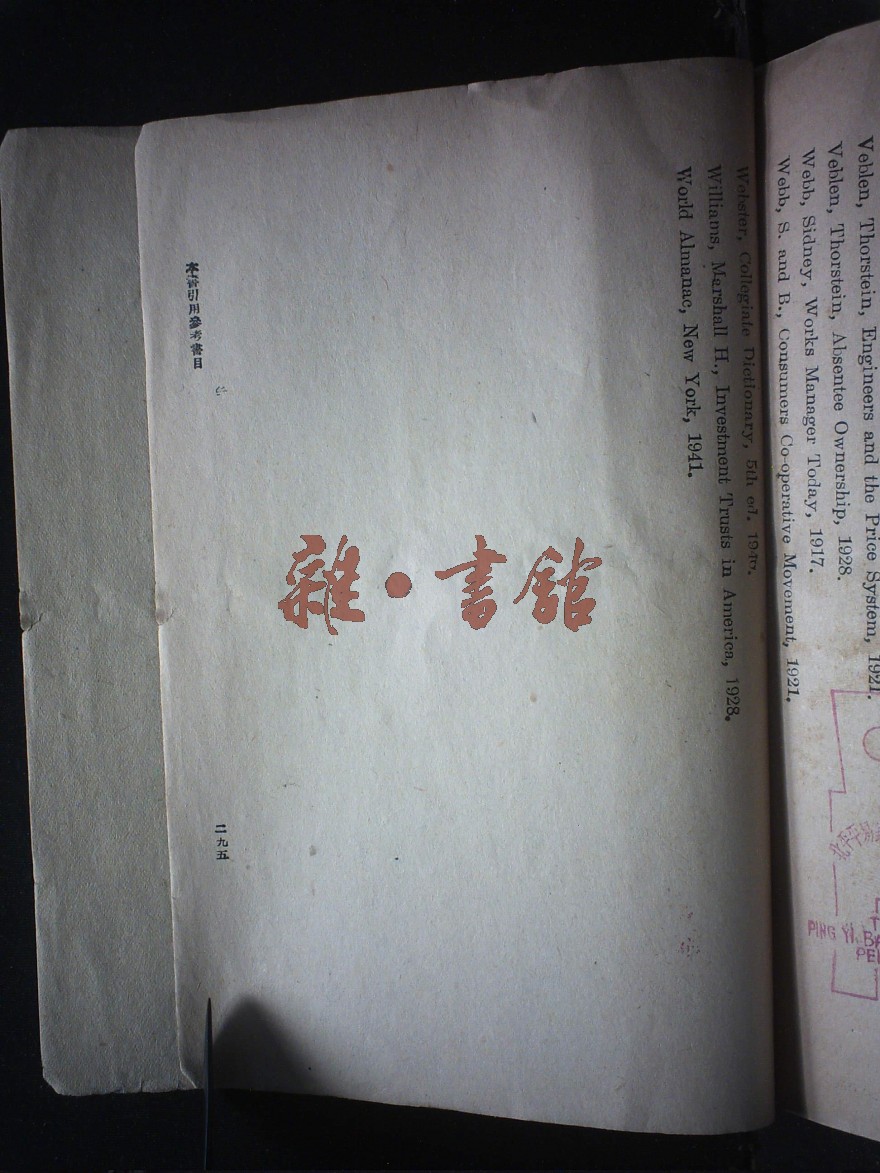 Veblen, Thorstein, Engineers and the Price System, 1921.
Veblen, Thorstein, Absentee Ownership, 1928.
Webb, Sidney, Works Manager Today, 1917.
Webb, S. and B., Consumers Co-operative Movement, 1921.
Webster, Collegiate Dictionary, 5th ed. 1940.
Williams, Marshall H., Investment Trusts in America, 1928.
World Almanac, New York, 1941.
本書引用參考書目
二九五
雜·書館
PING YI